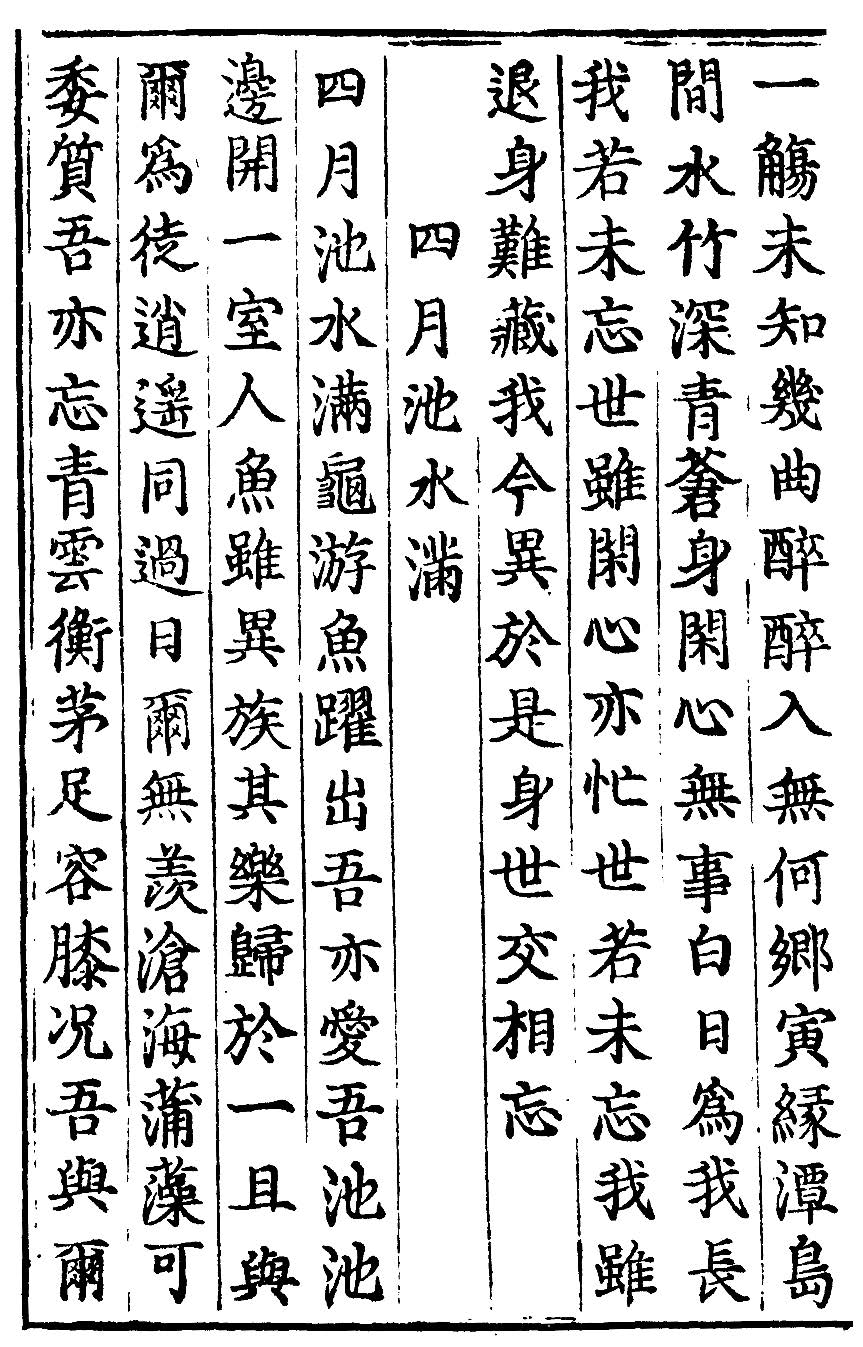 一觴未知幾曲醉醉入無何鄉寅緣潭島
間水竹深青蒼身閑心無事白日爲我長
我若未忘世雖閑心亦忙世若未忘我雖
退身難藏我今異於是身世交相忘
四月池水滿
四月池水滿龜游魚躍出吾亦愛吾池池
邊開一室人魚雖異族其樂歸於一且與
爾爲徒逍遥同過日爾無羨滄海蒲藻可
委質吾亦忘青雲衡茅足容膝况吾與爾